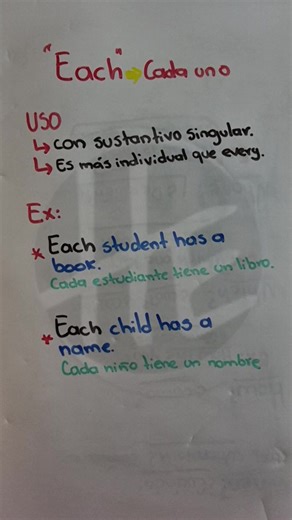 "Each" → Cada uno
USO
↳ con sustantivo singular.
↳ Es más individual que every.
Ex:
* Each student has a
book.
Cada estudiante tiene un libro.
* Each child has a
name.
Cada niño tiene un nombre